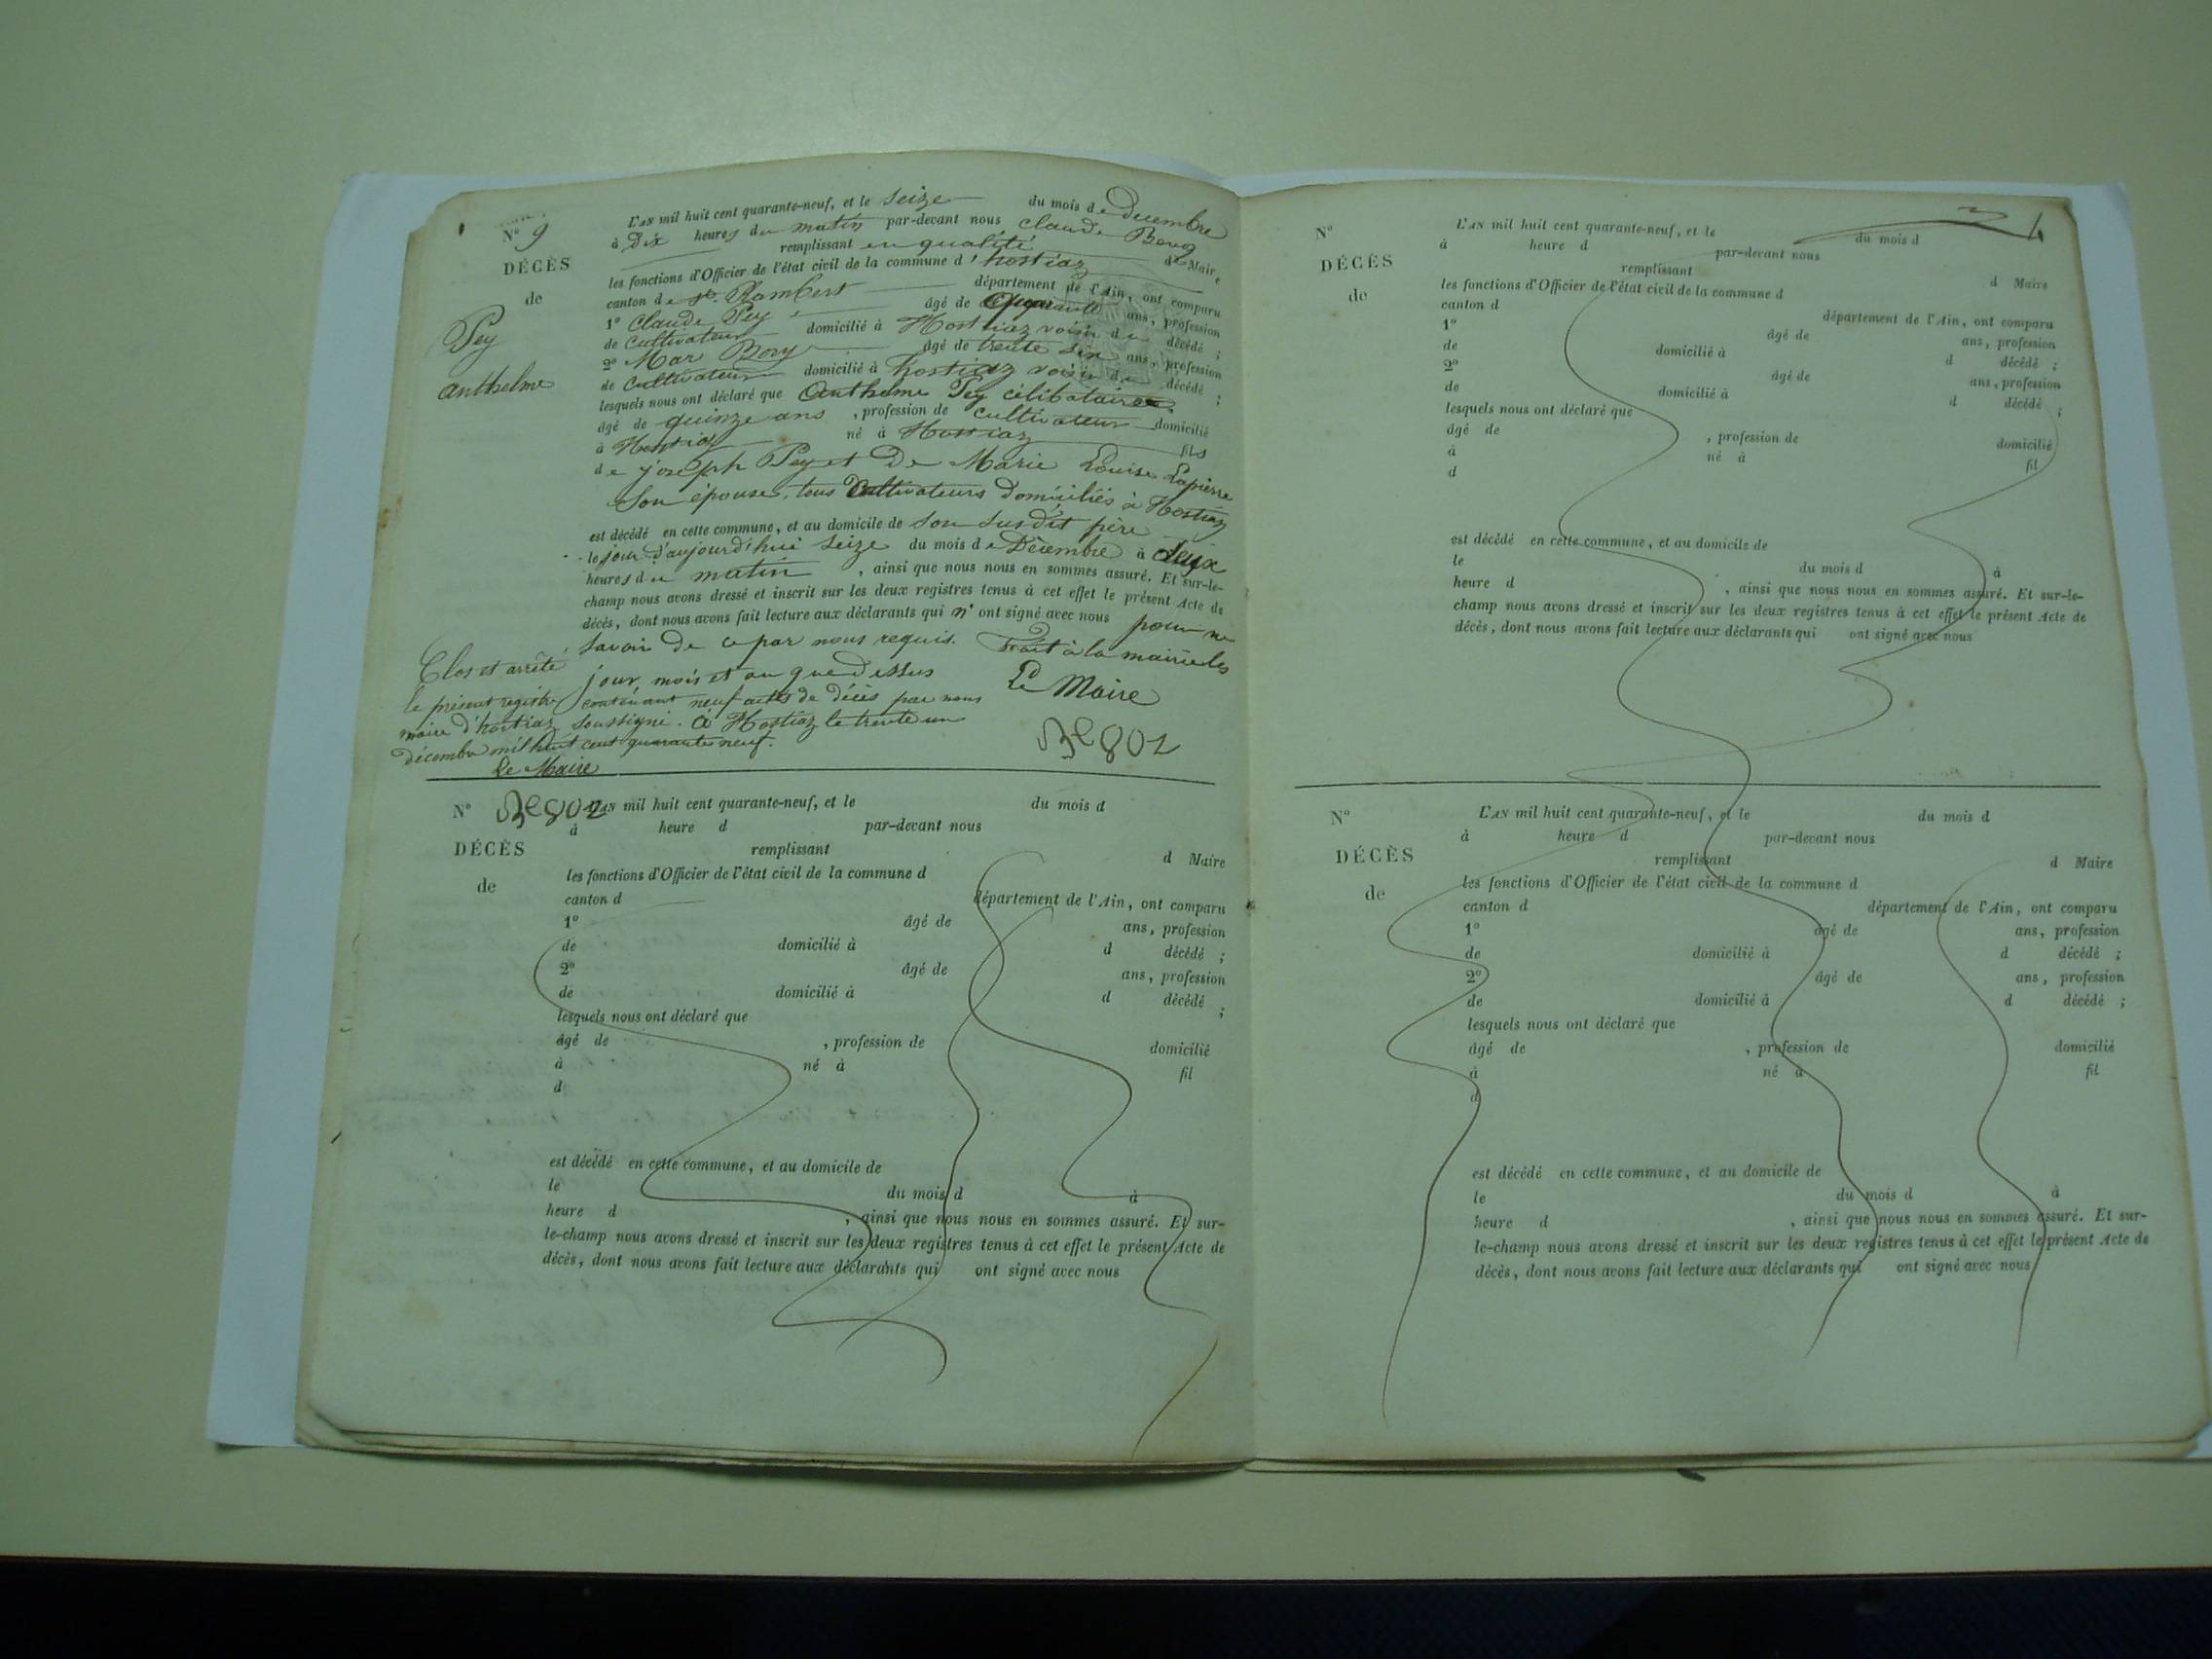 N° 9
DÉCÈS
de
Pey
anthelme
L'AN mil huit cent quarante-neuf, et le Seize du mois de Decembre
à Dix heures du matin par-devant nous Claude
remplissant en qualité de Maire
les fonctions d'Officier de l'état civil de la commune d'hostiaz
canton de St. Rambert département de l'Ain, ont comparu
1° Claude Pey âgé de ans, profession
de Cultivateur domicilié à Hostiaz voisin du décédé ;
2° Mar Bozy âgé de trente six ans, profession
de Cultivateur domicilié à hostiaz voisin du décédé ;
lesquels nous ont déclaré que Anthelme Pey célibataire
âgé de quinze ans , profession de cultivateur domicilié
à Hostiaz né à Hostiaz fils
de joseph Pey et De Marie Louise Lapierre
Son épouse, tous Cultivateurs Domiciliés à Hostiaz
est décédé en cette commune, et au domicile de Son Susdit père
le jour d'aujourd'hui Seize du mois de Décembre à deux
heures du matin , ainsi que nous nous en sommes assuré. Et sur-le-
champ nous avons dressé et inscrit sur les deux registres tenus à cet effet le présent Acte de
décès, dont nous avons fait lecture aux déclarants qui n' ont signé avec nous pour ne
Savoir De ce par nous requis. Fait à la mairie les
jour mois et an que Dessus
Le Maire
Clos et arrêté
le présent registre contenant neuf actes de décès par nous
maire d'hostiaz soussigné. à Hostiaz le trente un
décembre mil huit cent quarante neuf.
Le Maire
N° L'AN mil huit cent quarante-neuf, et le du mois d
à heure d par-devant nous
DÉCÈS
remplissant d Maire
de
les fonctions d'Officier de l'état civil de la commune d
canton d département de l'Ain, ont comparu
1° âgé de ans, profession
de domicilié à d décédé ;
2° âgé de ans, profession
de domicilié à d décédé ;
lesquels nous ont déclaré que
âgé de , profession de domicilié
à né à fil
d
est décédé en cette commune, et au domicile de
le du mois d à
heure d , ainsi que nous nous en sommes assuré. Et sur-
le-champ nous avons dressé et inscrit sur les deux registres tenus à cet effet le présent Acte de
décès, dont nous avons fait lecture aux déclarants qui ont signé avec nous
N° L'AN mil huit cent quarante-neuf, et le du mois d
à heure d par-devant nous
DÉCÈS
remplissant d Maire
de
les fonctions d'Officier de l'état civil de la commune d
canton d département de l'Ain, ont comparu
1° âgé de ans, profession
de domicilié à d décédé ;
2° âgé de ans, profession
de domicilié à d décédé ;
lesquels nous ont déclaré que
âgé de , profession de domicilié
à né à fil
d
est décédé en cette commune, et au domicile de
le du mois d à
heure d , ainsi que nous nous en sommes assuré. Et sur-le-
champ nous avons dressé et inscrit sur les deux registres tenus à cet effet le présent Acte de
décès, dont nous avons fait lecture aux déclarants qui ont signé avec nous
N° L'AN mil huit cent quarante-neuf, et le du mois d
à heure d par-devant nous
DÉCÈS
remplissant d Maire
de
les fonctions d'Officier de l'état civil de la commune d
canton d département de l'Ain, ont comparu
1° âgé de ans, profession
de domicilié à d décédé ;
2° âgé de ans, profession
de domicilié à d décédé ;
lesquels nous ont déclaré que
âgé de , profession de domicilié
à né à fil
d
est décédé en cette commune, et au domicile de
le du mois d à
heure d , ainsi que nous nous en sommes assuré. Et sur-
le-champ nous avons dressé et inscrit sur les deux registres tenus à cet effet le présent Acte de
décès, dont nous avons fait lecture aux déclarants qui ont signé avec nous